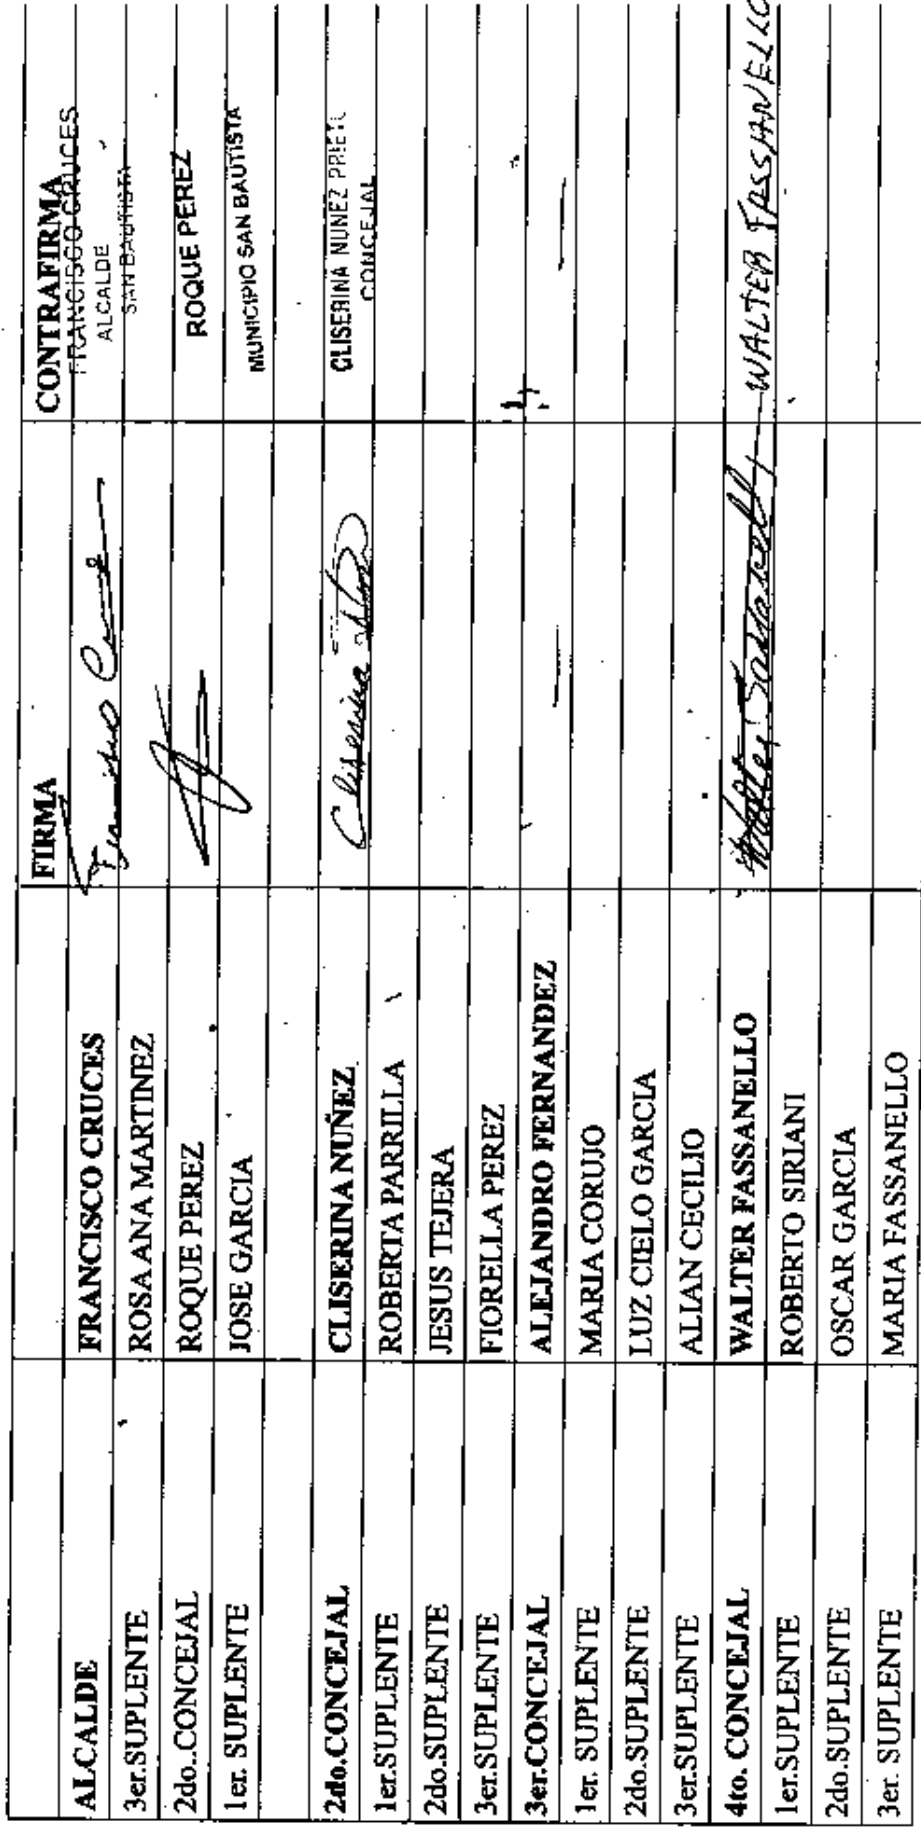 FIRMA CONTRAFIRMA
ALCALDE FRANCISCO CRUCES Francisco Cruces FRANCISCO CRUCES
ALCALDE
SAN BAUTISTA
3er.SUPLENTE ROSA ANA MARTINEZ
2do..CONCEJAL ROQUE PEREZ ROQUE PEREZ
1er. SUPLENTE JOSE GARCIA MUNICIPIO SAN BAUTISTA
2do.CONCEJAL CLISERINA NUÑEZ Cliserina CLISERINA NUÑEZ PRIETO
CONCEJAL
1er.SUPLENTE ROBERTA PARRILLA
2do.SUPLENTE JESUS TEJERA
3er.SUPLENTE FIORELLA PEREZ
3er.CONCEJAL ALEJANDRO FERNANDEZ
1er. SUPLENTE MARIA CORUJO
2do.SUPLENTE LUZ CIELO GARCIA
3er.SUPLENTE ALIAN CECILIO
4to. CONCEJAL WALTER FASSANELLO Walter Fassanello WALTER FASSANELLO
1er.SUPLENTE ROBERTO SIRIANI
2do.SUPLENTE OSCAR GARCIA
3er. SUPLENTE MARIA FASSANELLO